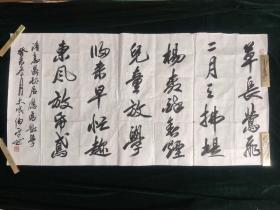 草長鶯飛
二月天拂堤
楊柳醉春煙
兒童放學
歸來早忙趁
東風放紙鳶
清高鼎村居